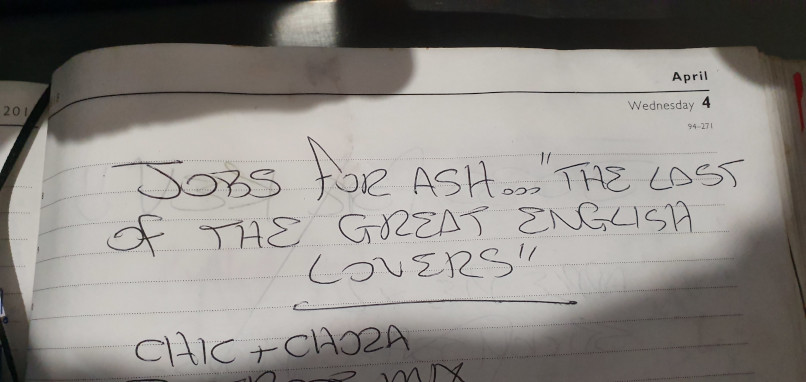 April
201
Wednesday 4
94-271
JOBS for ASH... "THE LAST
of THE GREAT ENGLISH
LOVERS"
CHIC + CHOZA
MIX